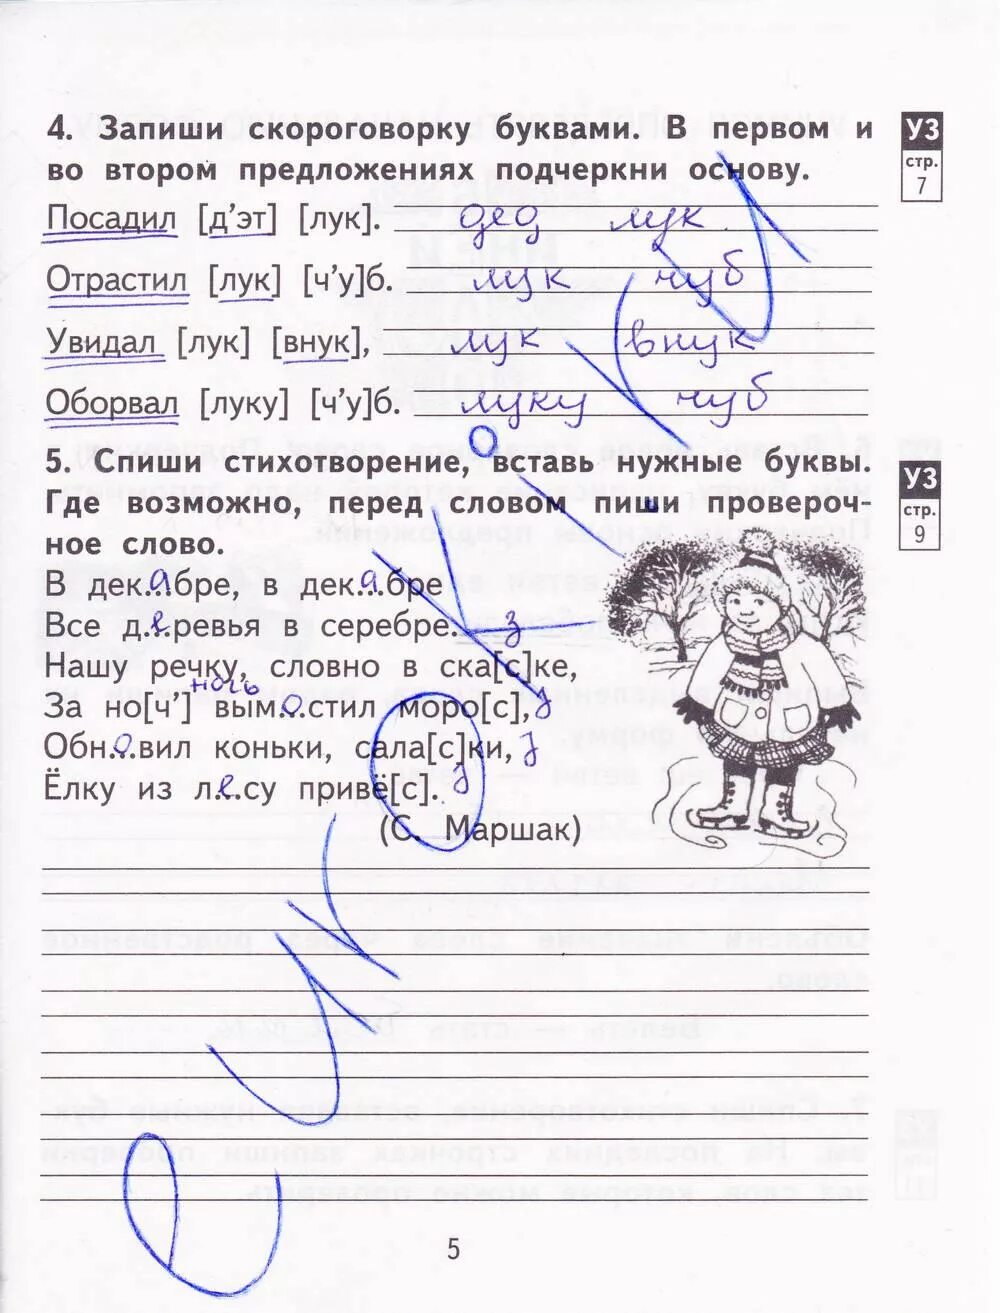 4. Запиши скороговорку буквами. В первом и УЗ
во втором предложениях подчеркни основу. стр. 7
Посадил [д'эт] [лук]. дед лук
Отрастил [лук] [ч'у]б. лук чуб
Увидал [лук] [внук], лук внук
Оборвал [луку] [ч'у]б. луку чуб
5. Спиши стихотворение, вставь нужные буквы. УЗ
Где возможно, перед словом пиши провероч- стр. 9
ное слово.
В дек.а.бре, в дек.а.бре
Все д.е.ревья в серебре. з
Нашу речку, словно в ска[с]ке,
ночь
За но[ч'] вым.о.стил моро[с], з
Обн.о.вил коньки, сала[с]ки, з
Ёлку из л.е.су привё[с]. з
(С. Маршак)
5